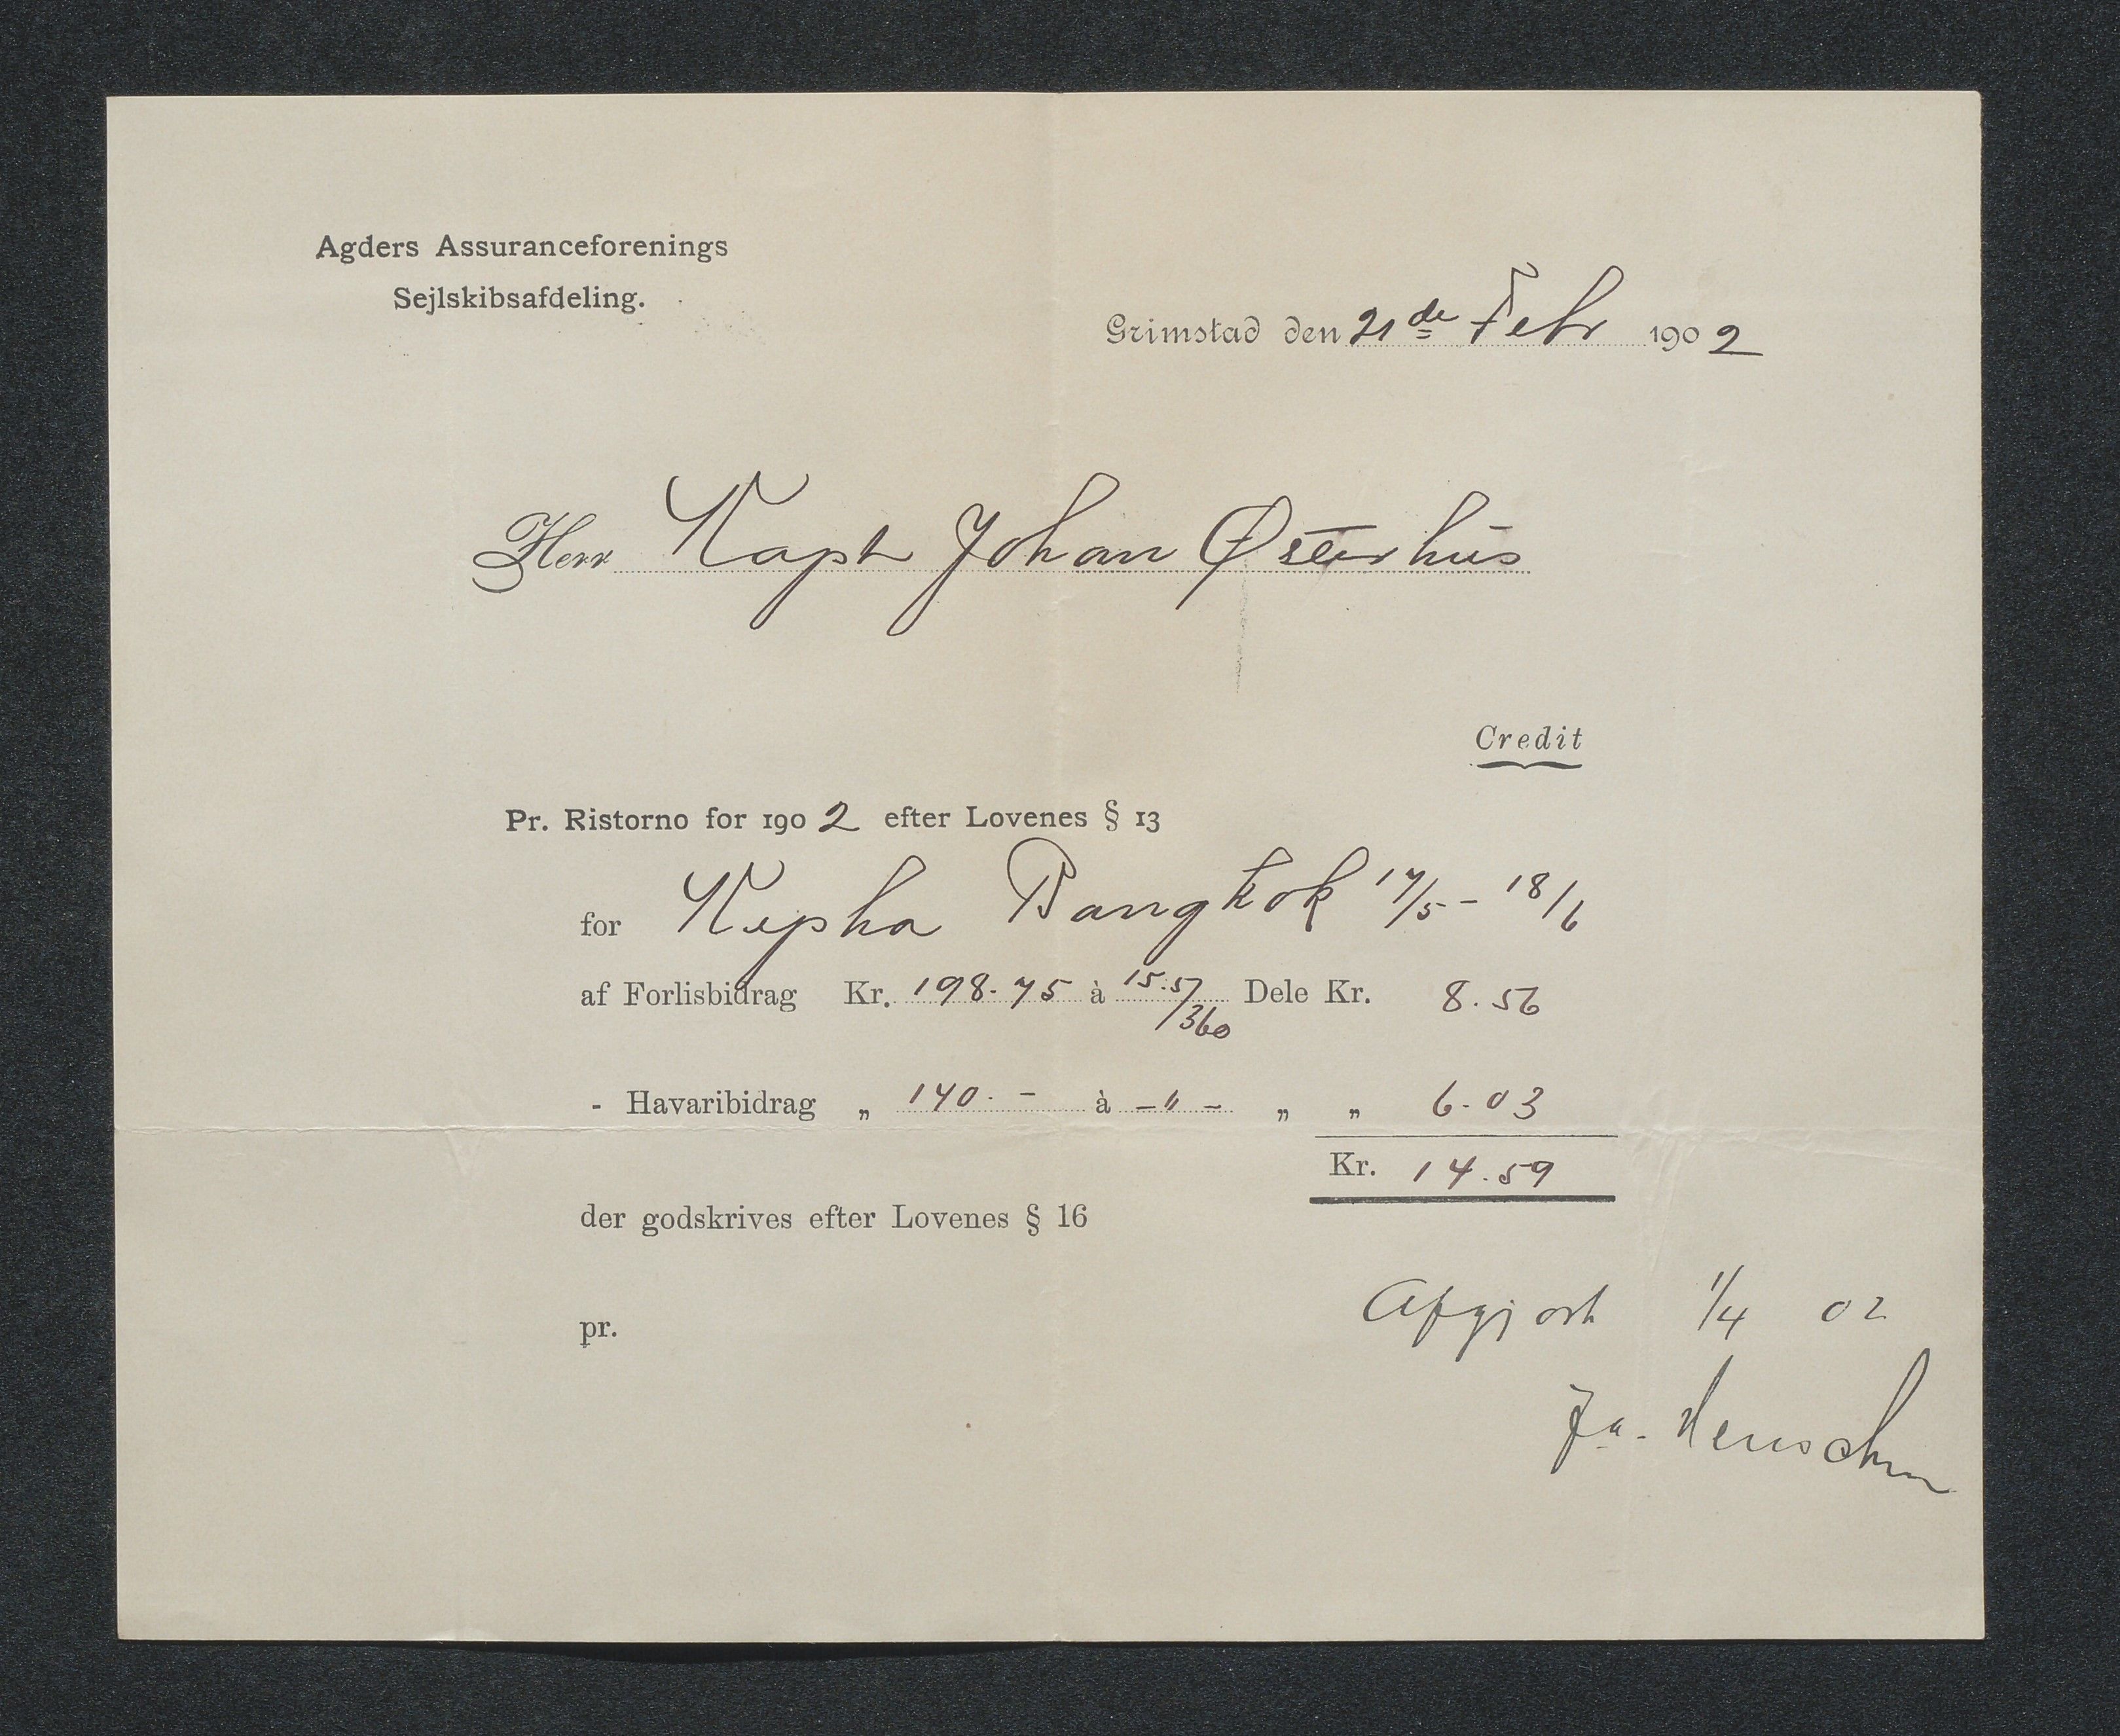 Agders Assuranceforenings
Sejlskibsafdeling.
Grimstad den 21de Febr 1902
Herr Kapt Johan Østerhus
Credit
Pr. Ristorno for 1902 efter Lovenes § 13
for Kepha Bangkok 17/5 - 18/6
af Forlisbidrag Kr. 198.75 à 15.5/360 Dele Kr. 8.56
- Havaribidrag „ 140. - à - " - „ „ 6.03
Kr. 14.59
der godskrives efter Lovenes § 16
pr.
Afgjort 1/4 02